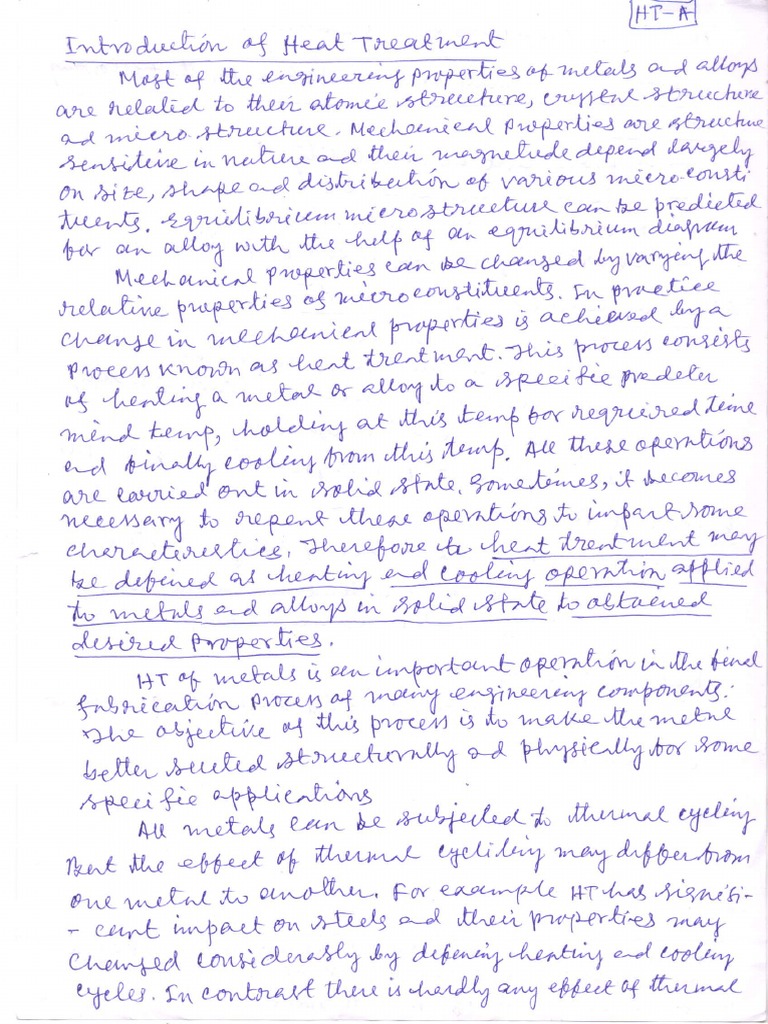 HT-A
Introduction of Heat Treatment
Most of the engineering properties of metals and alloys
are related to their atomic structure, crystal structure
ad micro structure. Mechanical Properties are structure
sensitive in nature and their magnetude depend largely
on size, shape and distribution of various micro-consti
tuents. Equilibrium microstructure can be predicted
for an alloy with the help of an equilibrium diagram
Mechanical properties can be changed by varying the
relative properties of microconstituents. In practice
change in mechanical properties is achieved by a
Process known as heat treatment. This process consists
of heating a metal or alloy to a specific predeter
mind temp, holding at this temp for required time
and finally cooling from this temp. All these operations
are carried out in solid state. Sometimes, it becomes
necessary to repeat these operations to impart some
characteristics. Therefore to heat treatment may
be defined as heating and cooling operation applied
to metals and alloys in solid state to obtained
desired properties.
HT of metals is an important operation in the final
fabrication process of many engineering components.
The objective of this process is to make the metal
better suited structurally ad physically for some
specific applications
All metals can be subjected to thermal cycling
But the effect of thermal cycliling may differ from
one metal to another. For example HT has signifi-
- cant impact on steels and their properties may
changed considerably by defining heating and cooling
cycles. In contrast there is hardly any effect of thermal